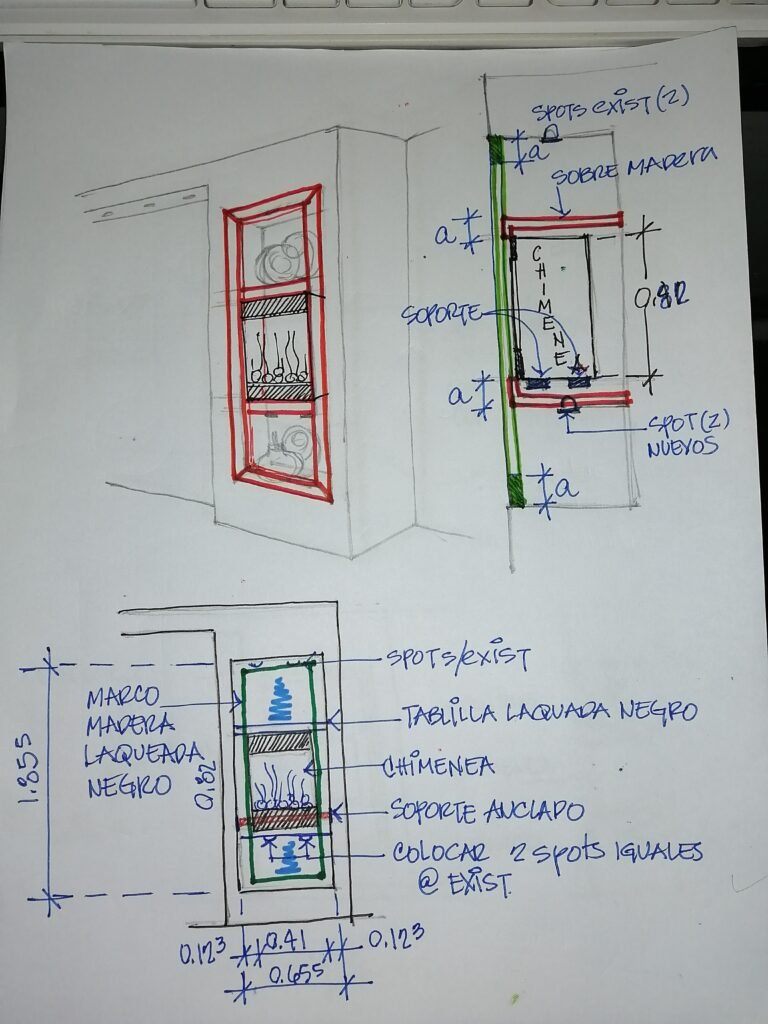 SPOTS EXIST (2)
a
SOBRE MADERA
a
CHIMENE
0.82
SOPORTE
a
SPOT (2)
NUEVOS
a
SPOTS/EXIST
MARCO
MADERA
LAQUEADA
NEGRO
TABLILLA LAQUADA NEGRO
1.855
0.82
CHIMENEA
SOPORTE ANCLADO
COLOCAR 2 SPOTS IGUALES
@ EXIST.
0.12³ 0.41 0.12³
0.655